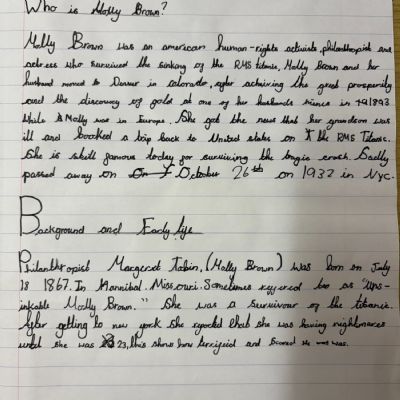 Who is Molly Brown?
Molly Brown was an american human-rights activists, philanthropist and
actress who survived the sinking of the RMS titanic, Molly Brown and her
husband moved to Denver in colorado, after achiving the great prosperity
and the discovery of gold at one of her husbands mines in 1893
While Molly was in Europe, She got the news that her grandson was
ill and booked a trip back to United states on the RMS Titanic.
She is skill famous today for surviving the tragic crash. Sadly
passed away on October 26th on 1932 in Nyc.
Background and Early life
Philanthropist Margeret Tobin, (Molly Brown) was born on July
18 1867. In Hannibal. Miss,ouri. Sometimes reffered too as "Uns-
inkable Molly Brown." She was a survivour of the titanic.
After getting to new york she reported that she was having nightmares
until she was 23, this shows how terrified and scared she was.